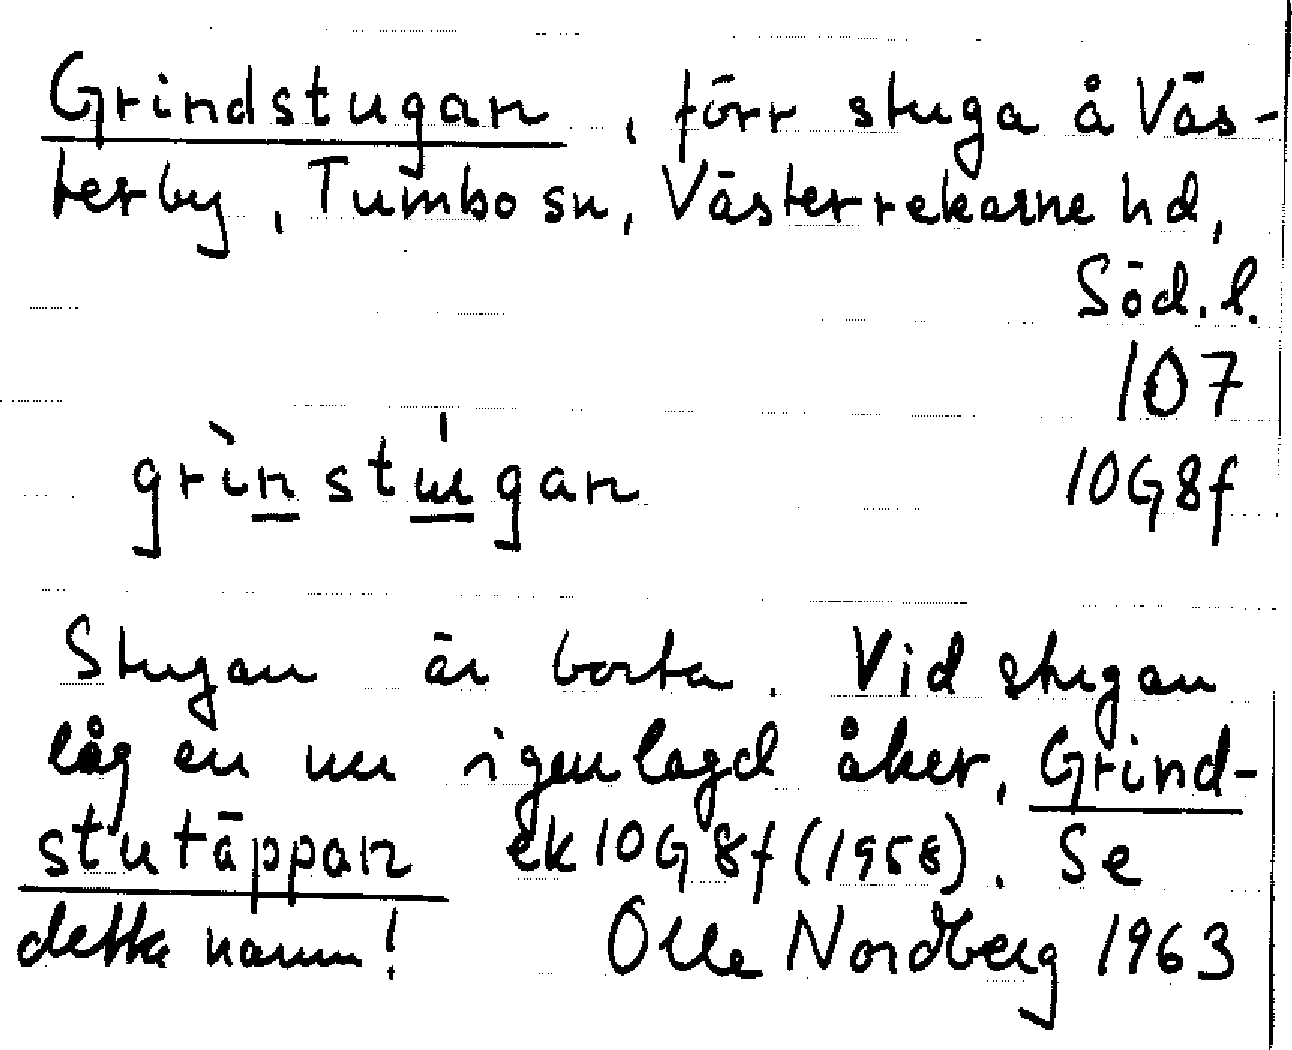 Grindstugan, förr stuga å Väs-
terby, Tumbo sn, Västerrekarne hd,
Söd. l.
107
grìnstúgan
10G8f
Stugan är borta. Vid stugan
låg en nu igenlagd åker, Grind-
stutäppan ek 10G8f (1958). Se
detta namn! Olle Nordberg 1963